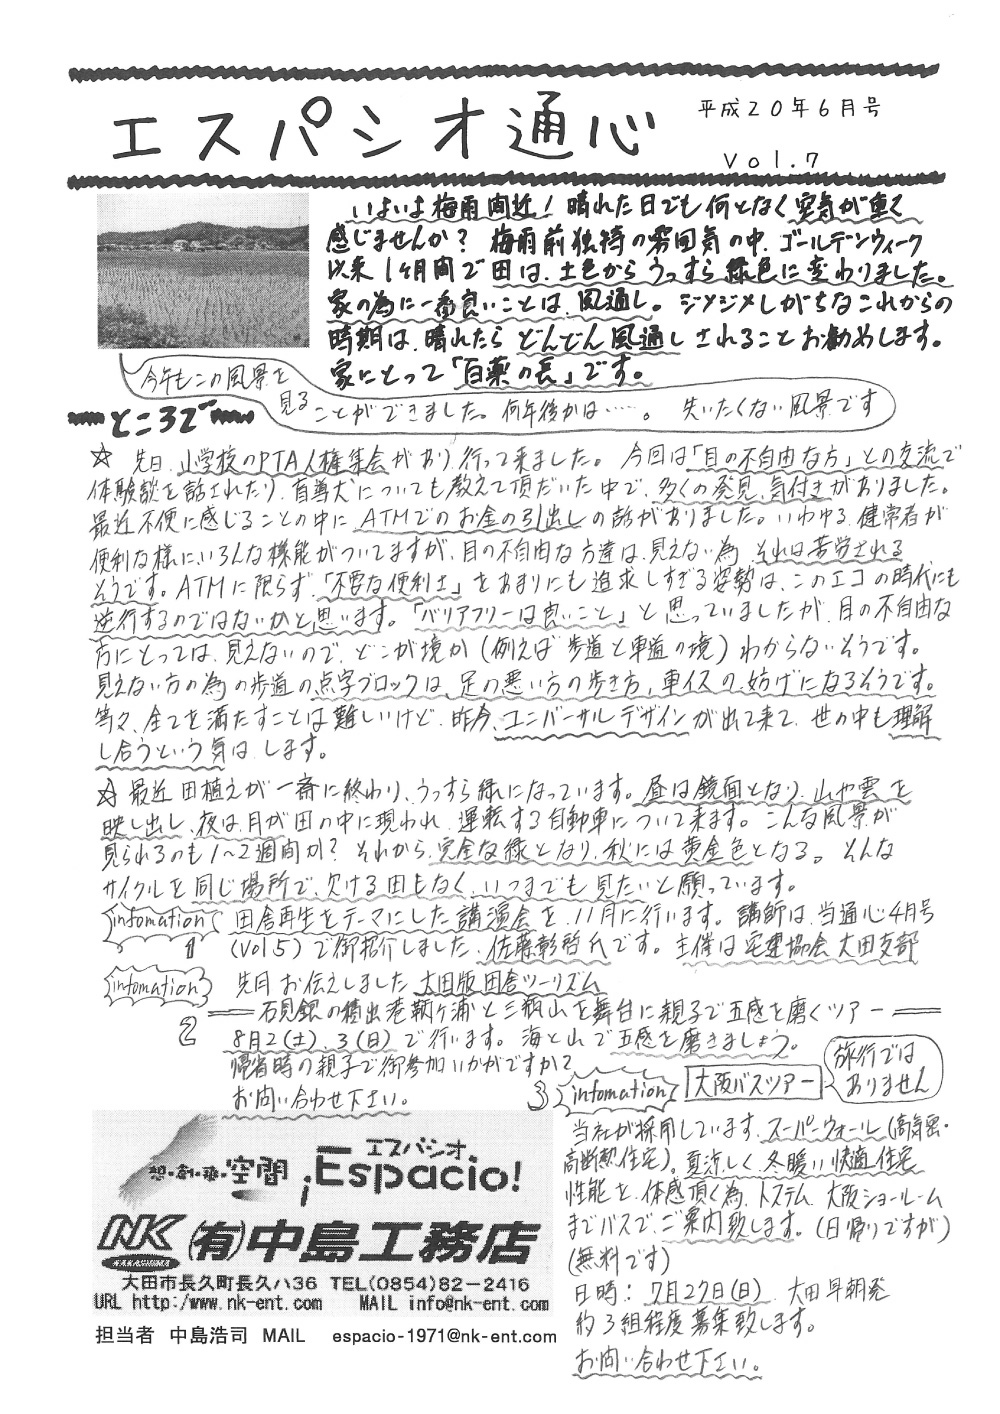 エスパシオ通心
平成20年6月号
Vol.7
いよいよ梅雨間近！晴れた日でも何となく空気が重く
感じませんか？ 梅雨前独特の雰囲気の中、ゴールデンウィーク
以来1ヶ月間で田は、土色からうっすら緑色に変わりました。
家の為に一番良いことは、風通し。ジメジメしがちなこれからの
時期は、晴れたら どんどん風通しされることお勧めします。
家にとって「百薬の長」です。
今年もこの風景を
見る
ことができました。何年後かは……。 失いたくない風景です
ところで
☆ 先日、小学校のPTA人権集会があり、行って来ました。今回は「目の不自由な方」との交流で
体験談を話されたり、盲導犬についても教えて頂だいた中で、多くの発見、気付きがありました。
最近不便に感じることの中に ATMでのお金の引出しの話がありました。いわゆる、健常者が
便利な様にいろんな機能がついてますが、目の不自由な方達は、見えない為、それは苦労される
そうです。ATMに限らず、「不要な便利さ」をあまりにも追求しすぎる姿勢は、このエコの時代にも
逆行するのではないかと思います。「バリアフリーは良いこと」と思っていましたが、目の不自由な
方にとっては、見えないので、どこが境か（例えば 歩道と車道の境）わからないそうです。
見えない方の為の歩道の点字ブロックは、足の悪い方の歩き方、車イスの妨げになるそうです。
等々、全てを満たすことは難しいけど、昨今、ユニバーサルデザインが出て来て、世の中も理解
し合うという気は、します。
☆ 最近 田植えが一斉に終わり、うっすら緑になっています。昼は鏡面となり、山や雲を
映し出し、夜は、月が田の中に現われ、運転する自動車について来ます。こんな風景が
見られるのも1〜2週間か？ それから、完全な緑となり、秋には黄金色となる。そんな
サイクルを同じ場所で、欠ける田もなく、いつまでも見たいと願っています。
infomation 1
田舎再生をテーマにした講演会を、11月に行います。講師は、当通心4月号
(Vol 5)で御紹介しました、佐藤彰啓氏です。主催は宅建協会 大田支部
infomation 2
先月お伝えしました 大田版田舎ツーリズム
石見銀の積出港鞆ヶ浦と三瓶山を舞台に親子で五感を磨くツアー
8月2(土)、3(日)で行います。海と山で五感を磨きましょう。
帰省時の親子で御参加いかがですか？
お問い合わせ下さい。
3 infomation
大阪バスツアー
旅行では
ありません
当社が採用しています、スーパーウォール（高気密・
高断熱住宅）。夏涼しく、冬暖い快適住宅
性能を、体感頂く為、トステム 大阪ショールーム
までバスで、ご案内致します。（日帰りですが）
（無料です）
日時：7月27日(日) 大田早朝発
約3組程度募集致します。
お問い合わせ下さい。
エスパシオ
想・創・発・空間 ¡Espacio!
NK NAKASHIMA (有)中島工務店
大田市長久町長久ハ36 TEL(0854)82-2416
URL http:/www.nk-ent.com MAIL info@nk-ent.com
担当者 中島浩司 MAIL espacio-1971@nk-ent.com